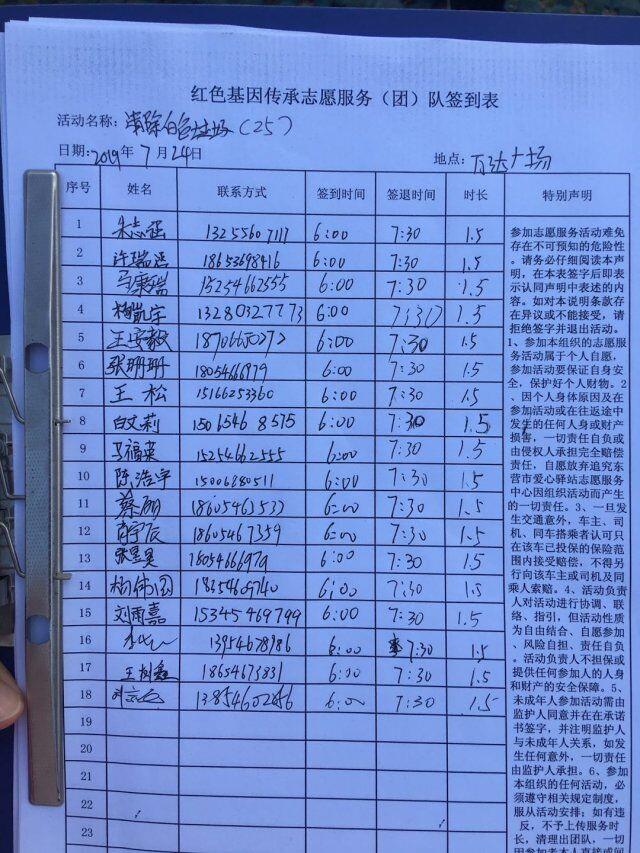 红色基因传承志愿服务（团）队签到表
活动名称：清除白色垃圾（25）
日期：2019年7月24日 地点：万达广场
序号 姓名 联系方式 签到时间 签退时间 时长 特别声明
1 朱志强 13255607111 6:00 7:30 1.5
2 许瑞 18653698416 6:00 7:30 1.5
3 马康瑞 15254662555 6:00 7:30 1.5
4 杨凯宇 13280327773 6:00 7:30 1.5
5 王安毅 18706650272 6:00 7:30 1.5
6 张珊珊 18054666979 6:00 7:30 1.5
7 王松 15166253360 6:00 7:30 1.5
8 白文莉 1506546 8575 6:00 7:30 1.5
9 马福英 15254662555 6:00 7:30 1.5
10 陈浩宇 15006880511 6:00 7:30 1.5
11 蔡丽 6:00 7:30 1.5
12 18605467359 6:00 7:30 1.5
13 张昱昊 18054666979 6:00 7:30 1.5
14 杨伟国 6:00 7:30 1.5
15 刘雨嘉 15345469799 6:00 7:30 1.5
16 13954678986 6:00 7:30 1.5
17 王树鑫 18654673831 6:00 7:30 1.5
18 6:00 7:30 1.5
19
20
21
22
23
参加志愿服务活动难免
存在不可预知的危险性
。请务必仔细阅读本声
明，在本表签字后即表
示认同声明中表述的内
容。如对本说明条款存
在异议或不能接受，请
拒绝签字并退出活动。
1、参加本组织的志愿服
务活动属于个人自愿，
参加活动要保证自身安
全，保护好个人财物。2
、因个人身体原因及在
参加活动或在往返途中
发生的任何人身或财产
损害，一切责任自负或
由侵权人承担完全赔偿
责任，自愿放弃追究东
营市爱心驿站志愿服务
中心因组织活动而产生
的一切责任。3、一旦发
生交通意外，车主、司
机、同车搭乘者认可只
在该车已投保的保险范
围内接受赔偿，不得另
行向该车主或司机及同
乘人索赔。4、活动负责
人对活动进行协调、联
络、指引，但活动性质
为自由结合、自愿参加
、风险自担、责任自负
。活动负责人不担保或
提供任何参加人的人身
和财产的安全保障。5、
未成年人参加活动需由
监护人同意并在在承诺
书签字，并注明监护人
与未成年人关系，如发
生任何意外，一切责任
由监护人承担。6、参加
本组织的任何活动，必
须遵守相关规定制度，
服从活动安排；如有违
反，不予上传服务时
长，清理出团队，一切